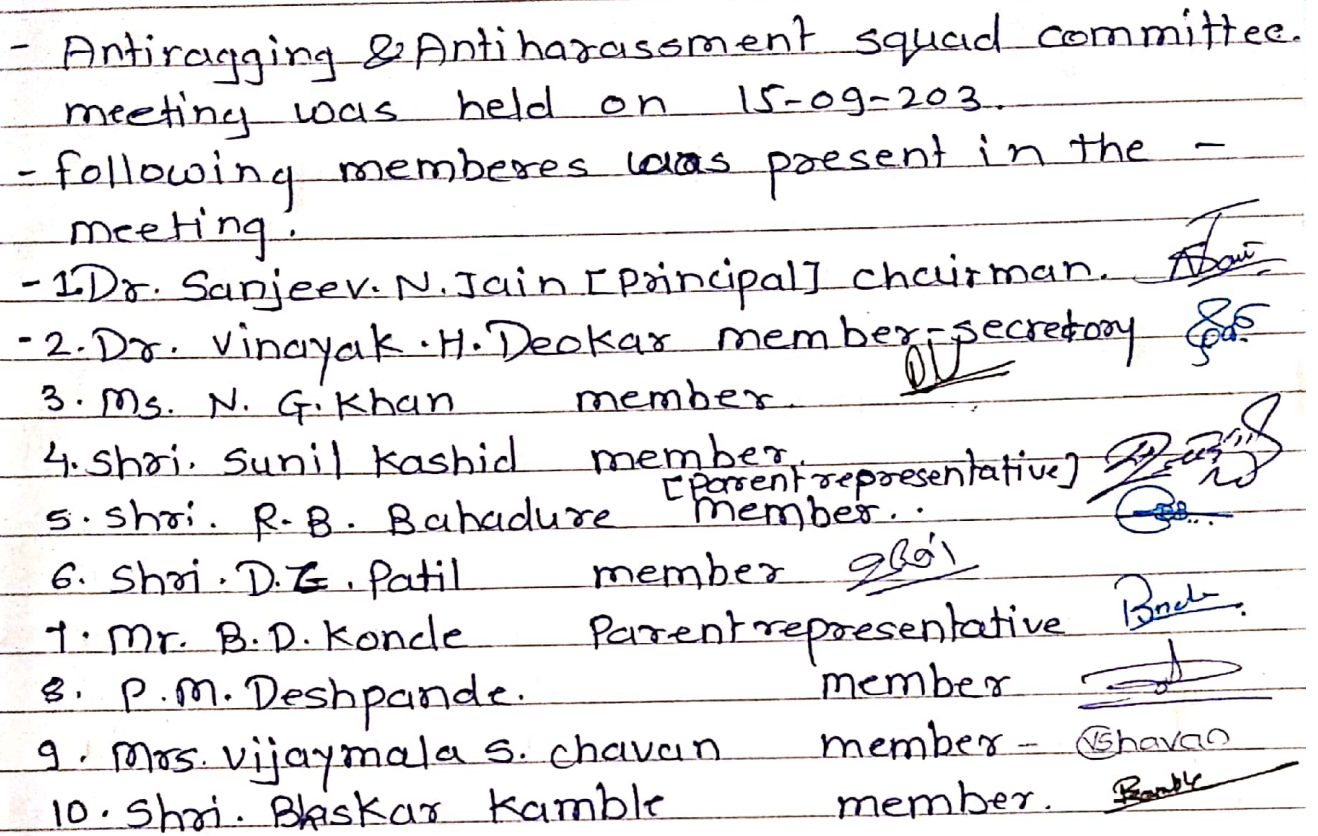 - Antiragging & Antiharassment squad committee.
meeting was held on 15-09-203.
- following memberes was present in the -
meeting.
- 1. Dr. Sanjeev. N. Jain [Principal] chairman.
- 2. Dr. Vinayak. H. Deokar member-secretory
3. Ms. N. G. Khan member.
4. Shri. Sunil Kashid member.
[Parent representative]
5. Shri. R. B. Bahadure member..
6. Shri. D. G. Patil member
7. Mr. B. D. Konde Parent representative
8. P. M. Deshpande. member
9. Mrs. Vijaymala S. chavan member - VShavan
10. Shri. Bhaskar Kamble member. Bamble